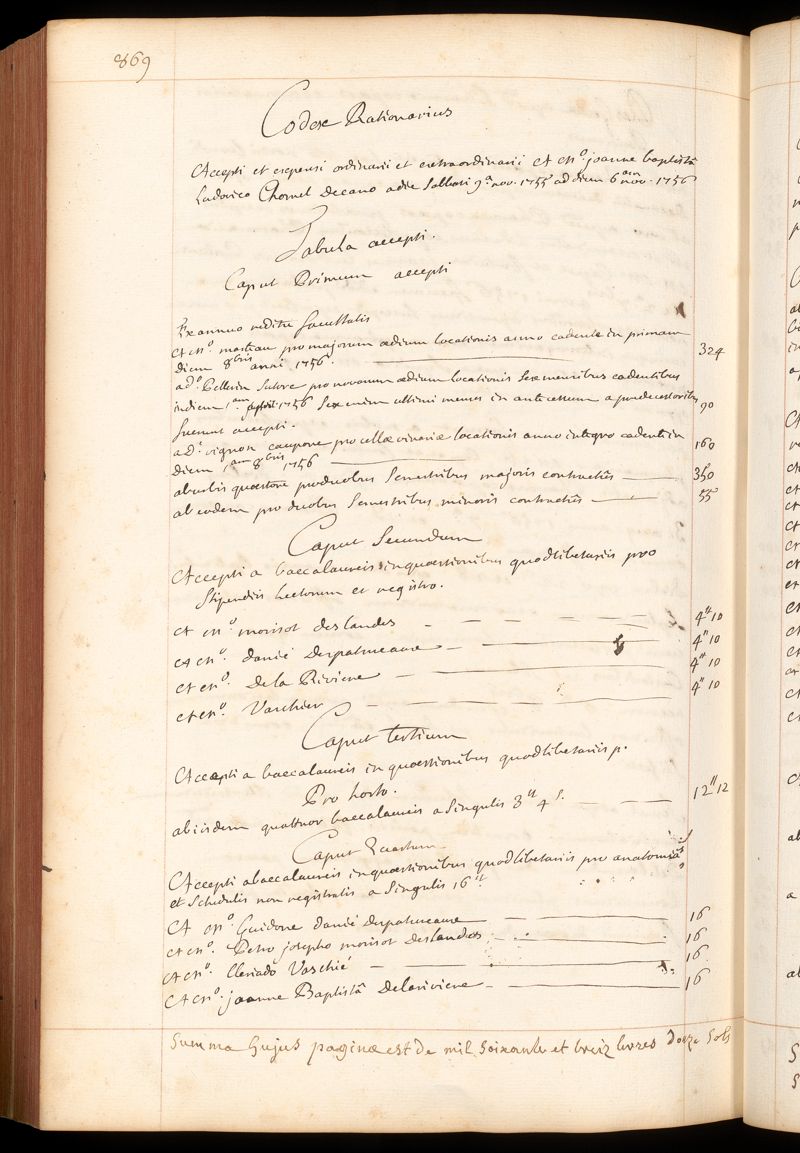 869
Codex Rationarius
Accepti et expensi ordinarii et extraordinarii A M.º joanne baptistâ
Ludovico Chomel Decano a die Sabbati 9ª nov. 1755 ad diem 6am nov. 1756
Tabula accepti.
Caput Primum accepti
Ex annuo reditu facultatis
A M.º mosticau pro majorum ædium locationis anno cadente in primam
diem 8bris anni 1756.
324
a d.º Pellerin Sutore pro novarum ædium locationis Sex mensibus cadentibus
in diem 1.am aprilis 1756 Sex enim ultimi menses in antecessum a predecessoribus
90
fuerunt accepti.
a d.º vignon caupone pro cellæ vinariæ locationis anno integro cadente in
160
diem 1am 8bris 1756
ab urbis quæstore pro duobus Semestribus majoris contractûs
350
ab eodem pro duobus Semestribus minoris contractûs
55
Caput Secundum
Accepti a baccalaureis in quæstionibus quodlibetariis pro
Stipendiis Lectorum et registro.
A M.º morisot deslandes
4tt 10
A M.º danié Despatureaux
4tt 10
A M.º De la Riviere
4tt 10
A M.º Varchier
4tt 10
Caput tertium
Accepti a baccalaureis in quæstionibus quodlibetariis p.
Pro horto.
ab iisdem quattuor baccalaureis a Singulis 3tt 4s.
12tt 12
Caput Quartum
Accepti a baccalaureis in quæstionibus quodlibetariis pro anatomiâ
et Schedulis non registratis a Singulis 16tt.
A M.º Guidone danié Despatureaux
16
A M.º Petro josepho morisot Deslandes
16
A M.º Claviado Vaschié
16
A M.º joanne Baptistâ Delariviere
16
Summa hujus paginæ est de mil Soixante et treiz livres Douze Sols